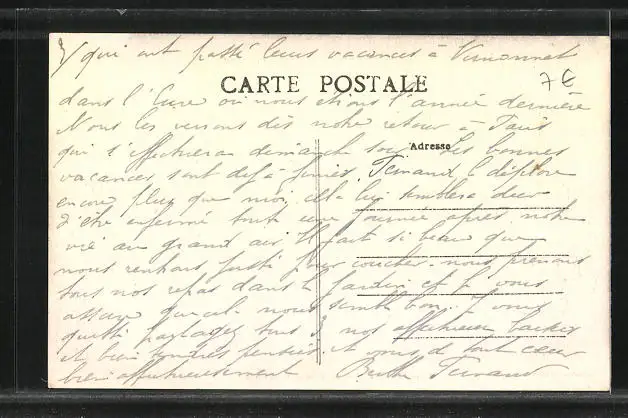 qui ont passé leurs vacances à Vernonnet
CARTE POSTALE
7 €
dans l'Eure où nous étions l'année dernière
Nous les verrons dès notre retour à Paris
Adresse
qui s'effectuera dimanche soir. Les bonnes
vacances sont déjà finies. Fernand le déplore
encore plus que moi, cela lui semblera dur
d'être enfermé toute une journée après notre
vie au grand air. Il fait si beau que
nous rentrons juste pour coucher. nous prenons
tous nos repas dans le jardin et je vous
assure que cela nous semble bon. Je vous
quitte partagez tous 3 nos affectueux baisers
et bien tendres pensées. A vous de tout cœur
bien affectueusement Berthe Fernand